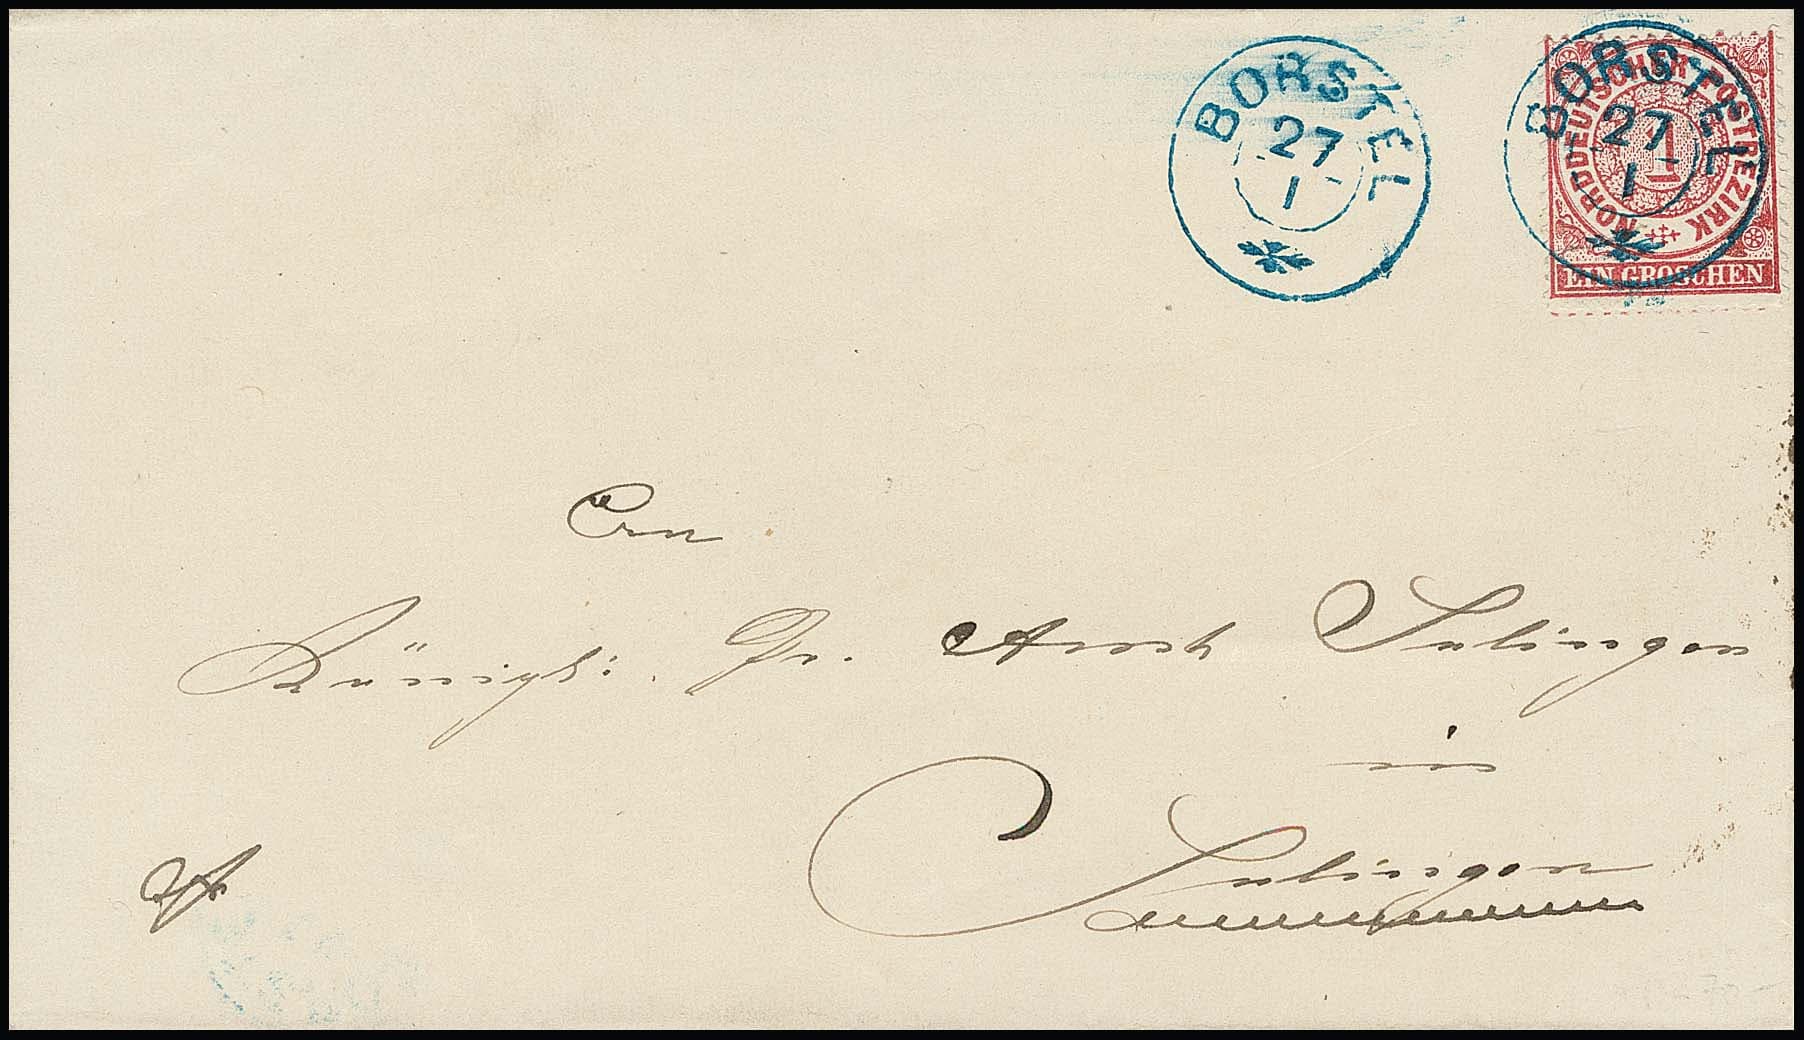 BORSTEL
27
1
BORSTEL
27
1
NORDDEUTSCHER POSTREZIRK
1
EIN GROSCHEN
Königl: Pr. Amt Sulingen
in
Sulingen